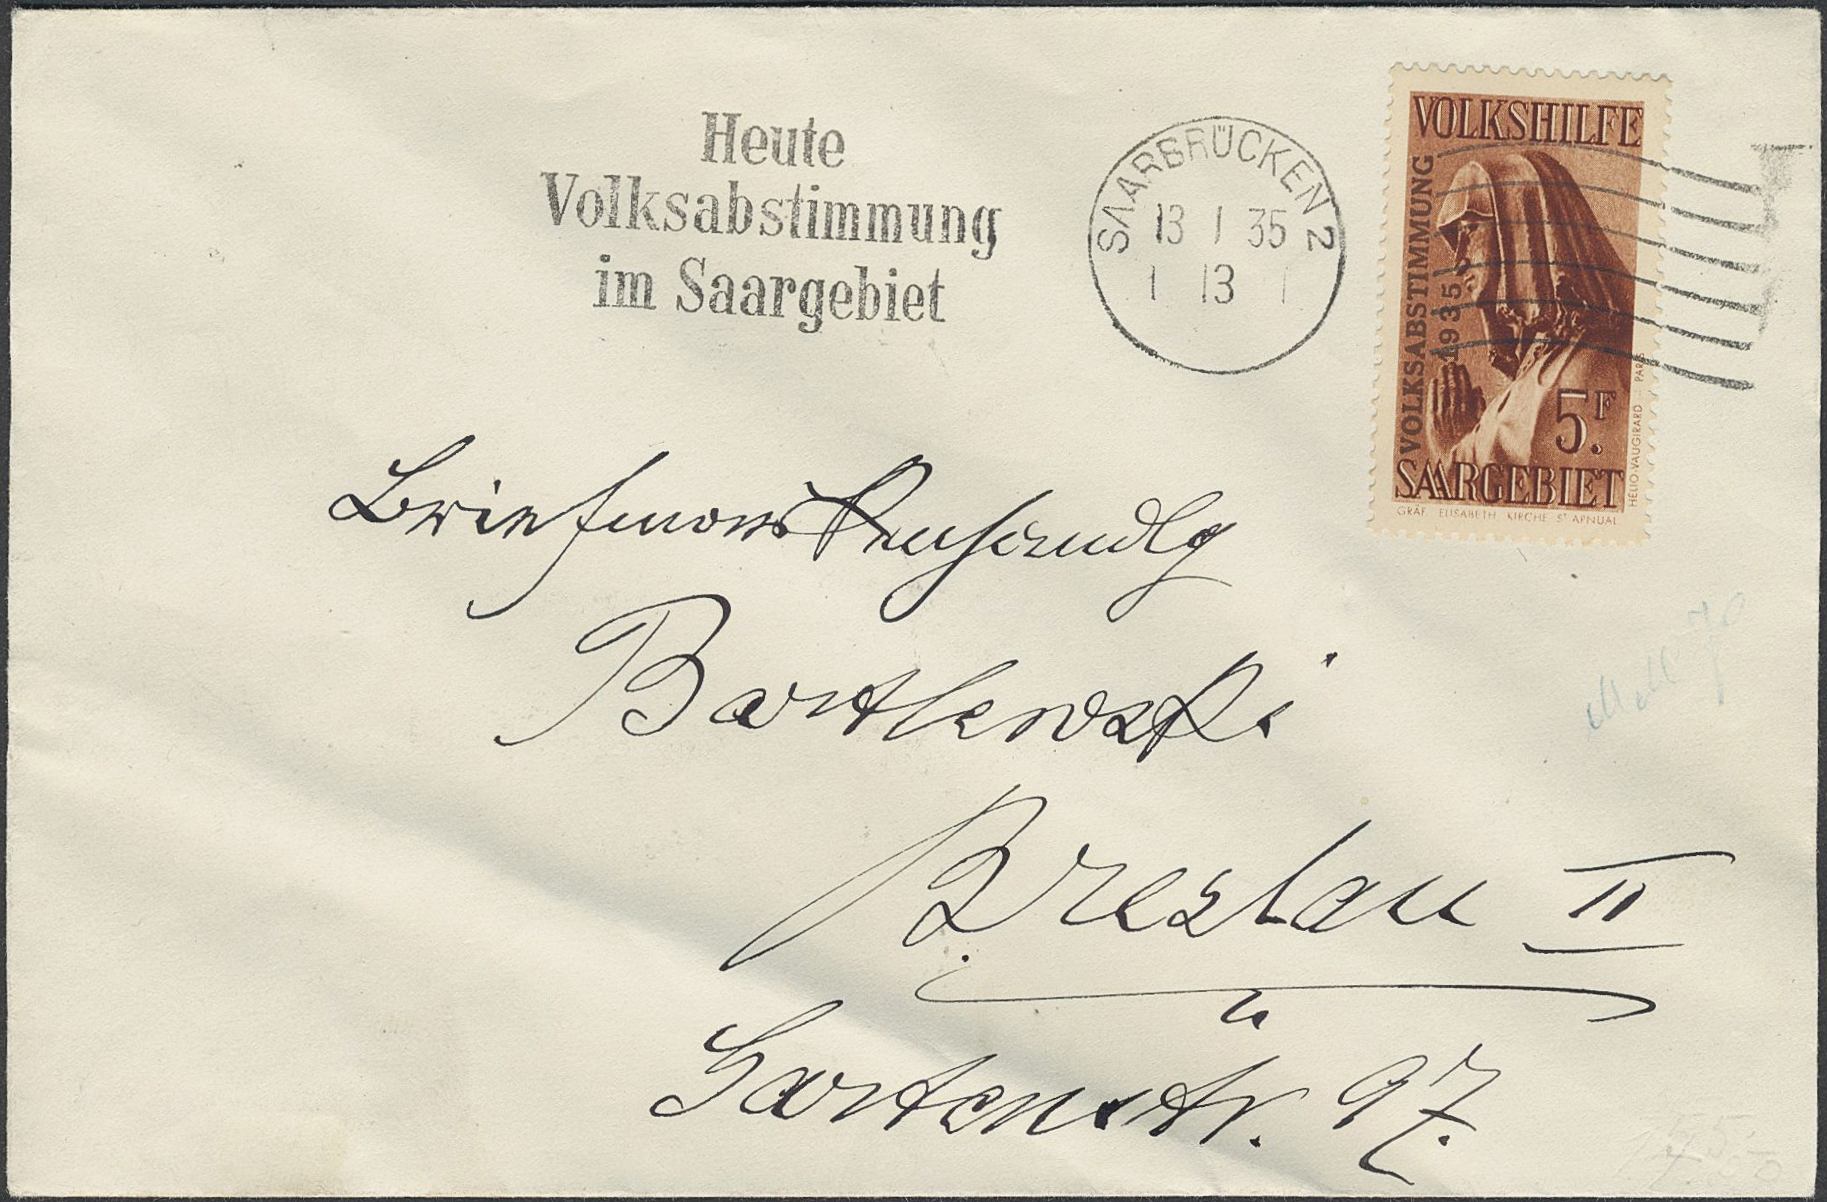 Heute
Volksabstimmung
im Saargebiet
SAARBRÜCKEN 2
13 1 35
13
VOLKSHILFE
VOLKSABSTIMMUNG
1935
5 F.
SAARGEBIET
GRÄF. ELISABETH KIRCHE ST ARNUAL
HELIO VAUGIRARD PARIS
Briefmarkenhandlg
Bartkowski
Breslau II
Gartenstr. 97.